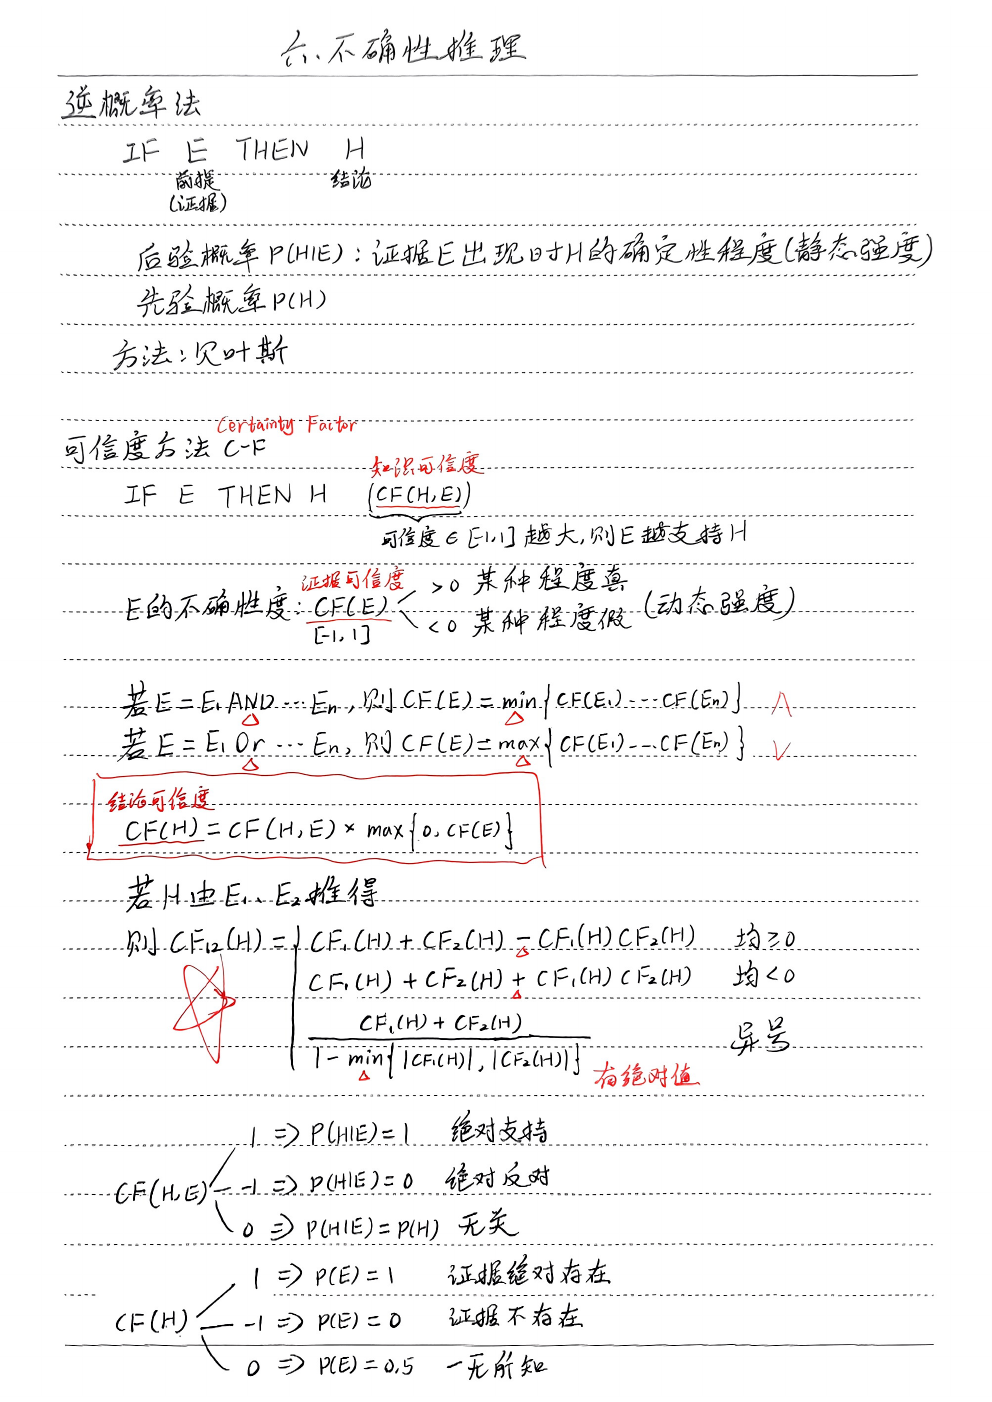 六、不确性推理
逆概率法
IF E THEN H
前提 结论
(证据)
后验概率P(H|E)：证据E出现时H的确定性程度(静态强度)
先验概率P(H)
方法：贝叶斯
Certainty Factor
可信度方法 C-F
知识可信度
IF E THEN H (CF(H,E))
可信度∈[-1,1] 越大,则E越支持H
证据可信度
>0 某种程度真
E的不确性度：CF(E) (动态强度)
<0 某种程度假
[-1,1]
若E=E₁AND…En,则CF(E)=min{CF(E₁)…CF(En)} ∧
若E=E₁Or…En,则CF(E)=max{CF(E₁)…CF(En)} ∨
结论可信度
CF(H)=CF(H,E)×max{0,CF(E)}
若H由E₁、E₂推得
则CF₁₂(H)= CF₁(H)+CF₂(H)-CF₁(H)CF₂(H) 均≥0
CF₁(H)+CF₂(H)+CF₁(H)CF₂(H) 均<0
CF₁(H)+CF₂(H)
异号
1-min{|CF₁(H)|,|CF₂(H)|}
有绝对值
1 => P(H|E)=1 绝对支持
CF(H,E) -1 => P(H|E)=0 绝对反对
0 => P(H|E)=P(H) 无关
1 => P(E)=1 证据绝对存在
CF(H) -1 => P(E)=0 证据不存在
0 => P(E)=0.5 一无所知